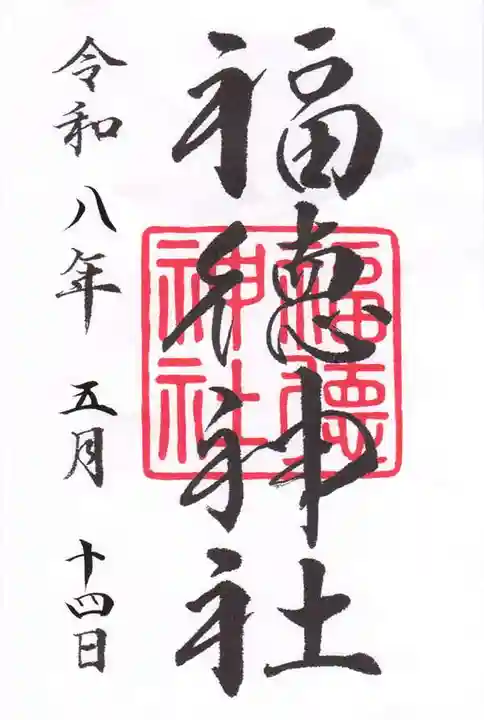 福徳神社
福徳神社
令和八年 五月 十四日